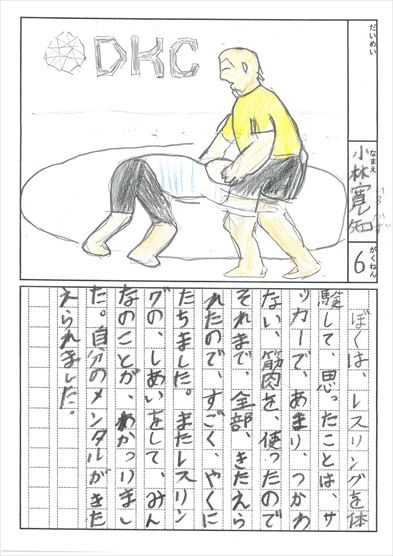 DKC
だいめい
なまえ
小林寛知
がくねん
6
ぼくは、レスリングを体
験して、思ったことは、サ
ッカーで、あまり、つかわ
ない、筋肉を、使ったので
それまで、全部、きたえら
れたので、すごく、やくに
たちました。またレスリン
グの、しあいをして、みん
なのことが、わかっりまし
た。自分のメンタルがきた
えられました。